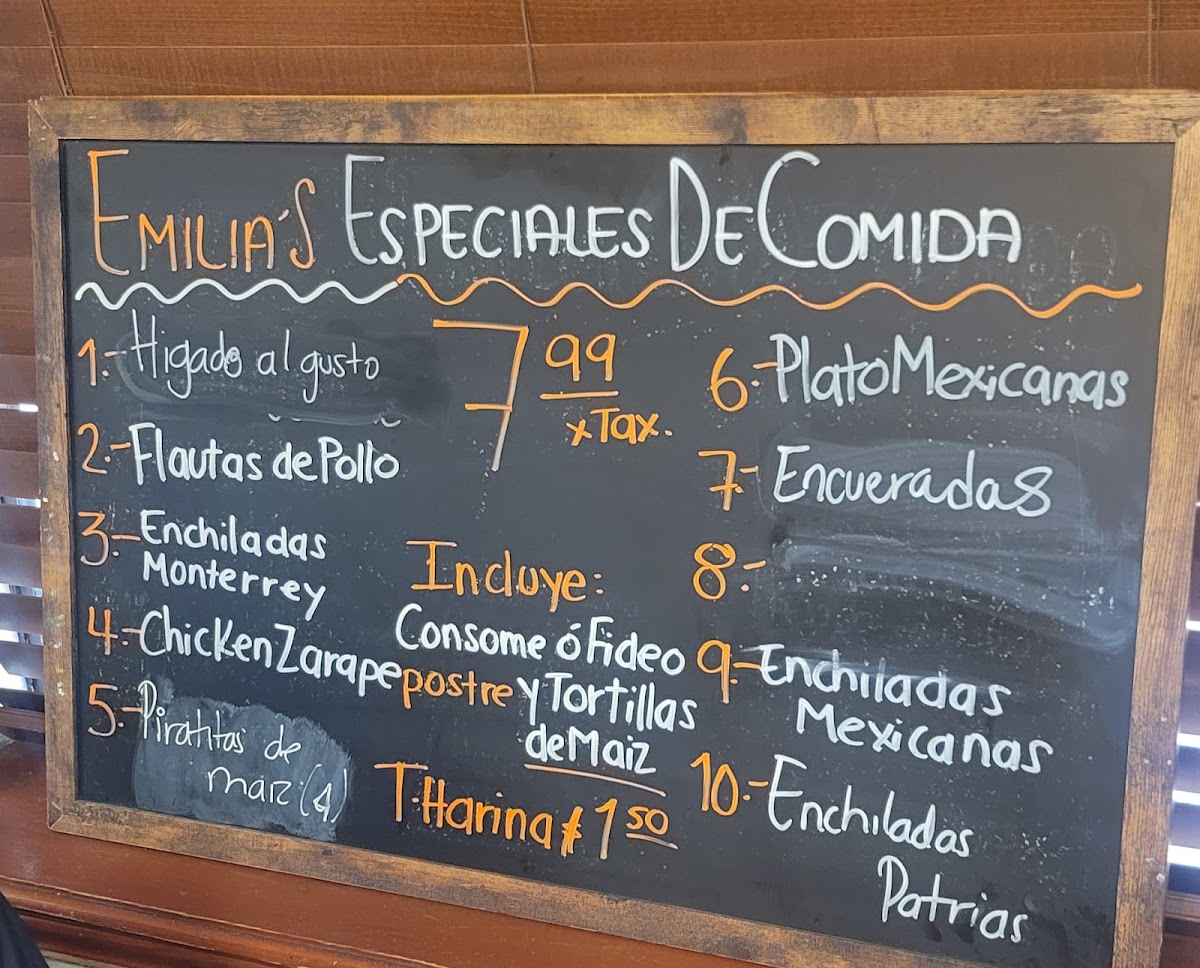 EMILIA'S ESPECIALES DE COMIDA
1.- Higado al gusto
2.- Flautas de Pollo
3.- Enchiladas
Monterrey
4.- Chicken Zarape
5.- Piratitos de
maiz (4)
7 99
x Tax.
Incluye:
Consome ó Fideo
postre y Tortillas
de Maiz
T. Harina $ 1 50
6.- Plato Mexicanas
7.- Encueradas
8.-
9.- Enchiladas
Mexicanas
10.- Enchiladas
Patrias